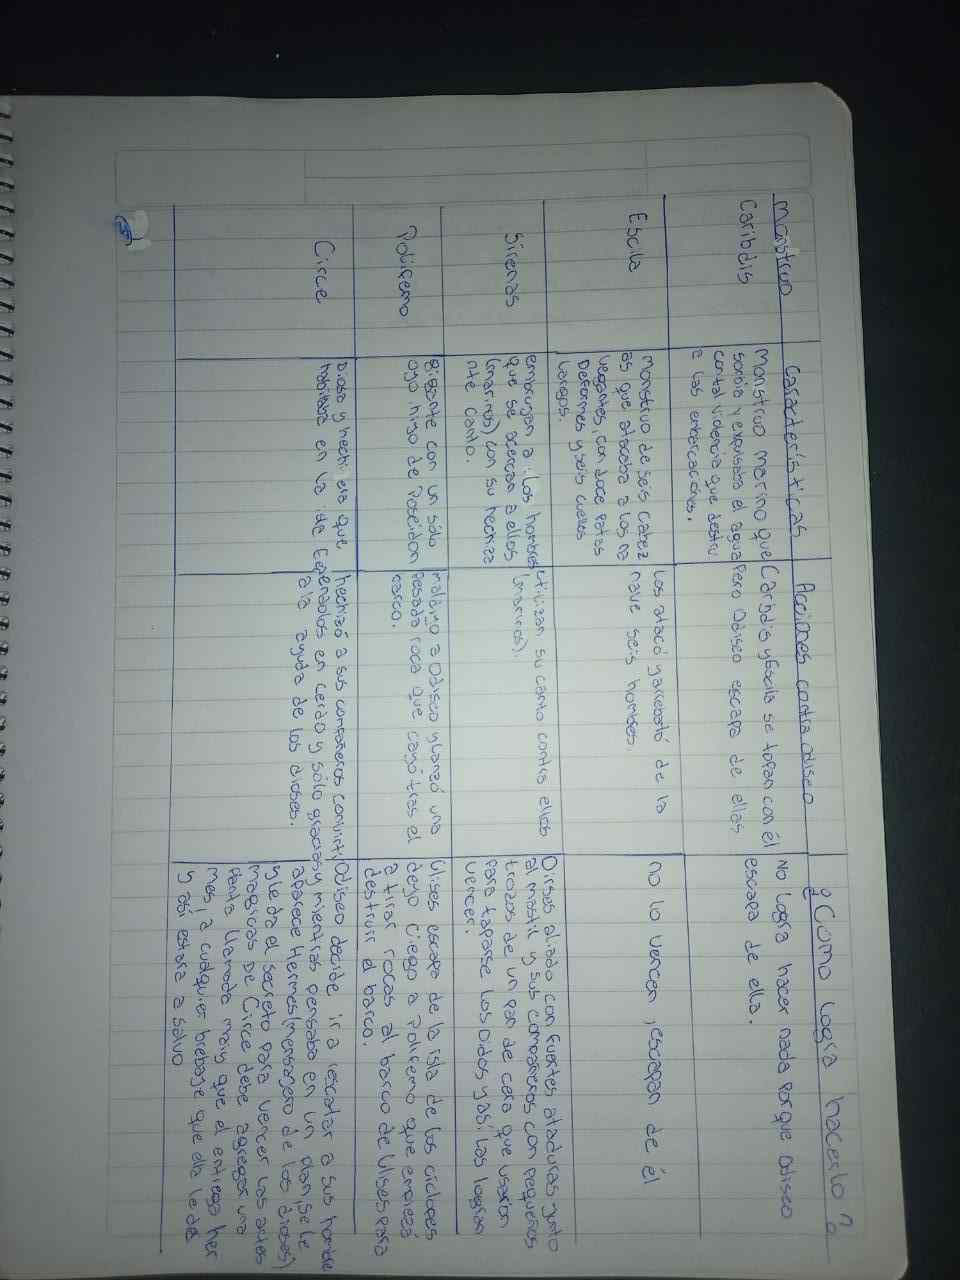 Monstruo
Características
Acciones contra odiseo
¿Como logra hacerlo?
Caribdis
Monstruo marino que
sorbía y expulsaba el agua
con tal violencia que destru
a las embarcaciones.
Caribdis y Escila se topan con él
Pero Odiseo escapa de ellas
No logra hacer nada porque odiseo
escapa de ella.
Escila
monstruo de seis cabez
as que atacaba a los na
vegantes, con doce patas
Deformes y seis cuellos
Largos.
Los atacó y arrebató de la
nave seis hombres.
no lo vencen, escapan de él
Sirenas
embrujan a los hombres
que se acercan a ellos
(marinos) con su hechiza
nte canto.
utilizan su canto contra ellos
(marinos).
Ulises atado con fuertes ataduras junto
al mastil y sus compañeros con pequeños
trozos de un pan de cera que usaron
para taparse los oidos y así las logran
vencer.
Polifemo
gigante con un sólo
ojo hijo de Poseidon
maldijo a Odiseo y lanzó una
Pesada roca que cayó tras el
barco.
Ulises escapa de la isla de los cíclopes
dejo ciego a Polifemo que empieza
a tirar rocas al barco de Ulises para
destruir el barco.
Circe
Diosa y hechicera que
habitaba en la isla de Eea
hechizó a sus compañeros convirti
endolos en cerdo y sólo gracias
a la ayuda de los dioses.
Odiseo decide ir a rescatar a sus hombre
y mientras pensaba en un plan, se le
aparece Hermes (mensajero de los dioses)
y le da el secreto para vencer las artes
magicas de Circe debe agregar una
planta llamada moly que el entrega her
mes, a cualquier brebaje que ella le dé
y así estara a salvo